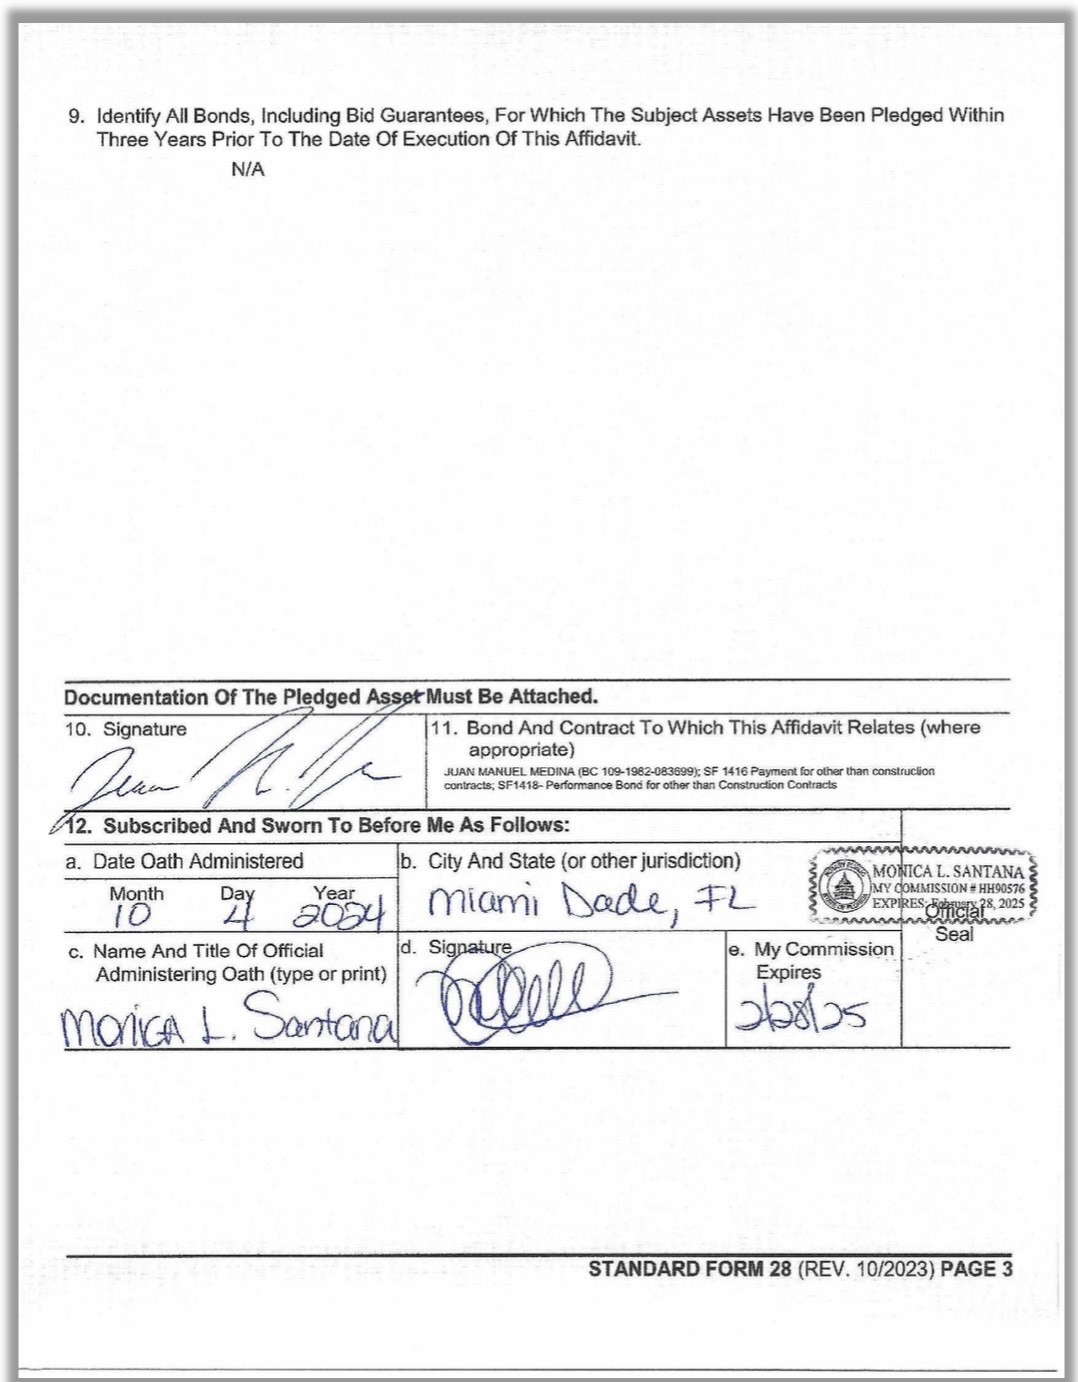 9. Identify All Bonds, Including Bid Guarantees, For Which The Subject Assets Have Been Pledged Within
Three Years Prior To The Date Of Execution Of This Affidavit.
N/A
Documentation Of The Pledged Asset Must Be Attached.
10. Signature
11. Bond And Contract To Which This Affidavit Relates (where
appropriate)
JUAN MANUEL MEDINA (BC 109-1962-083699); SF 1416 Payment for other than construction
contracts; SF1418- Performance Bond for other than Construction Contracts
12. Subscribed And Sworn To Before Me As Follows:
a. Date Oath Administered
Month Day Year
10 4 2024
b. City And State (or other jurisdiction)
Miami Dade, FL
MONICA L. SANTANA
MY COMMISSION # HH90576
EXPIRES: February 28, 2025
Official
Seal
c. Name And Title Of Official
Administering Oath (type or print)
Monica L. Santana
d. Signature
e. My Commission
Expires
2/28/25
STANDARD FORM 28 (REV. 10/2023) PAGE 3